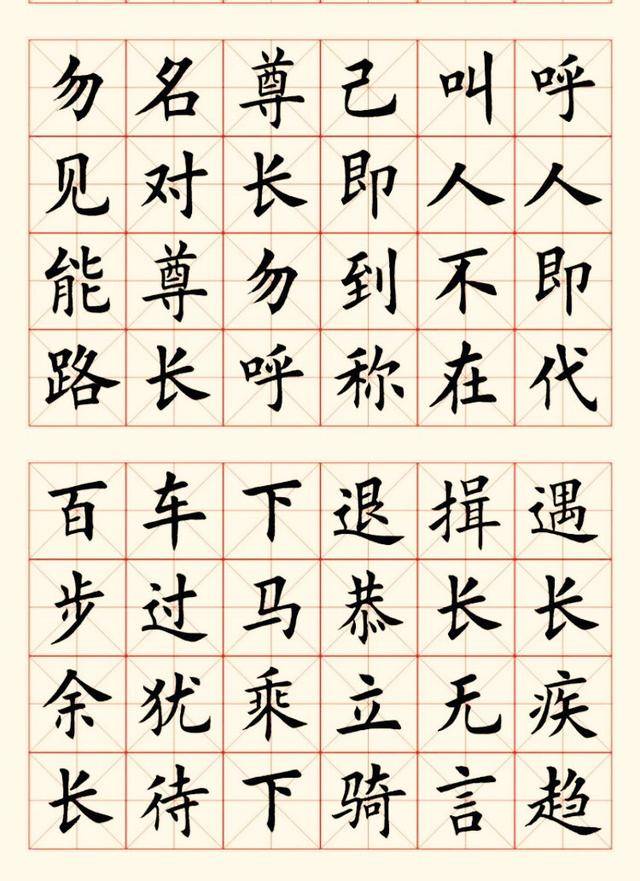 呼人即代
叫人不在
己即到称
尊长勿呼
名对尊长
勿见能路
遇长疾趋
揖长无言
退恭立骑
下马乘下
车过犹待
百步余长